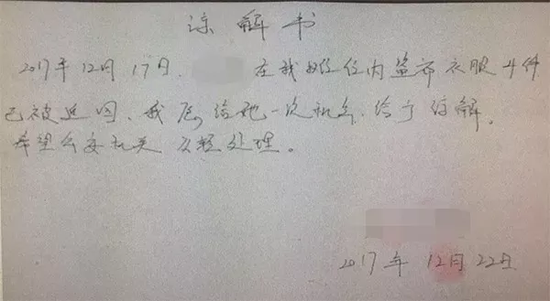 谅解书
2017年12月17日. 在我单位内盗窃衣服4件
已被追回、我愿给她一次机会、给予谅解。
希望公安机关从轻处理。
2017年12月22日